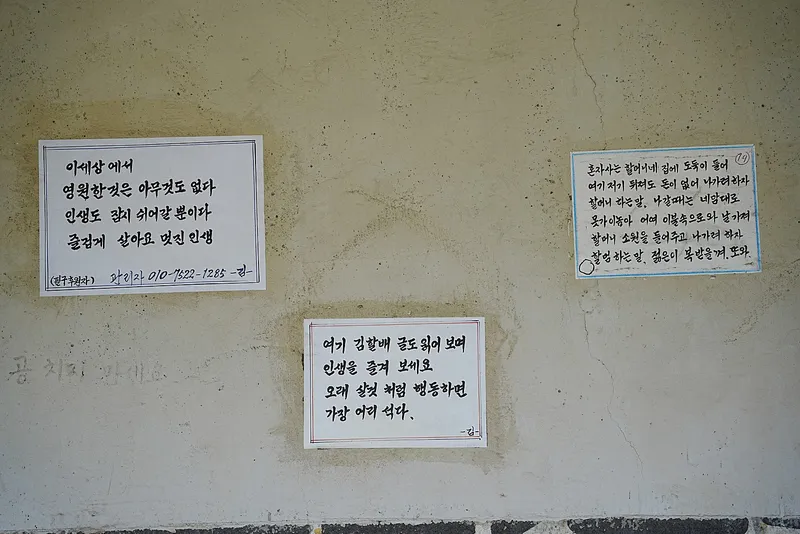 이세상에서
영원한것은 아무것도 없다
인생도 잠시 쉬어갈 뿐이다
즐겁게 살아요 멋진인생
(전구후원자) 관리자 010-7522-1285 -김-
여기 김할배 글도 읽어 보며
인생을 즐겨 보세요
오래 살것 처럼 행동하면
가장 어리 석다.
-김-
19
혼자사는 할머니네 집에 도둑이 들어
여기 저기 뒤져도 돈이 없어 나가려 하자
할머니 하는말, 나갈때는 네맘대로
못가이놈아 어여 이불속으로와 날가져
할머니 소원을 들어주고 나가려 하자
할멈 하는말, 젊은이 복받을껴, 또와.
공 치지 마세요